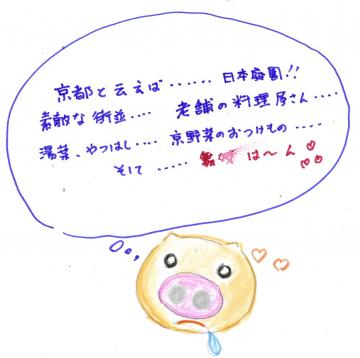 京都と云えば‥‥‥日本庭園!!
素敵な街並‥‥老舗の料理屋さん‥‥
湯葉、やつはし‥‥京野菜のおつけもの‥‥‥
そして‥‥‥舞妓は〜ん